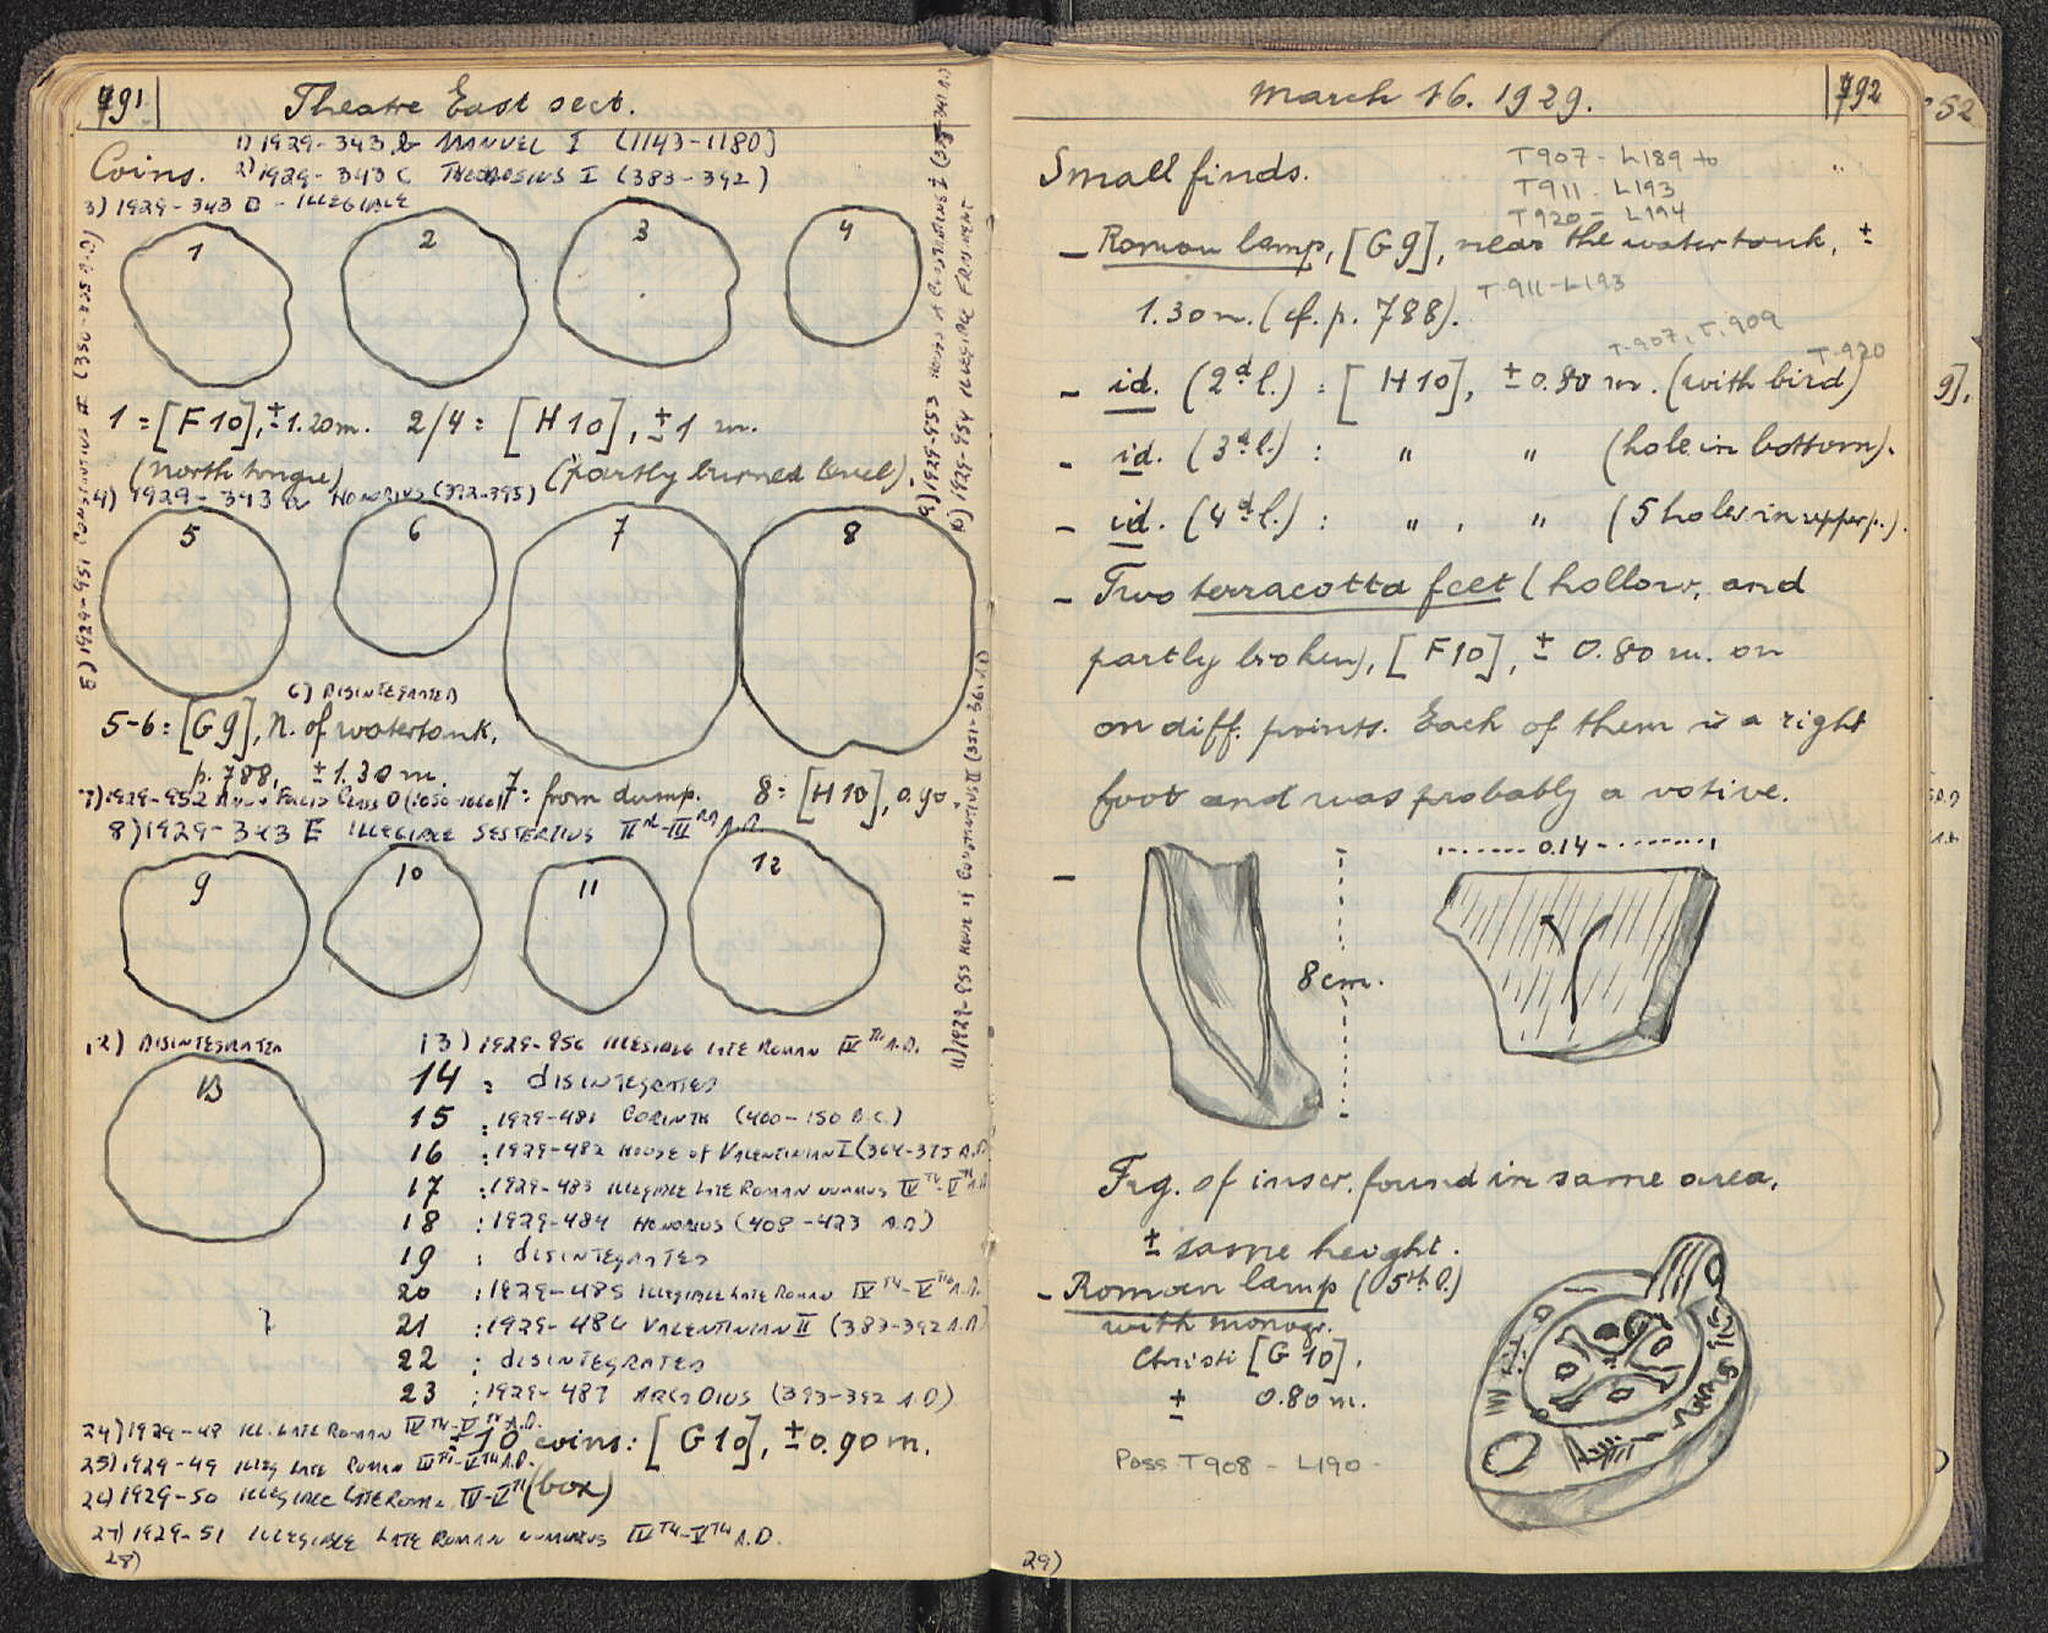 791
Theatre East sect.
1) 1929-343 b MANUEL I (1143-1180)
Coins. 2) 1929-343 C THEODOSIUS I (383-392)
3) 1929-343 D - ILLEGIBLE
1
2
3
4
1 = [F10], ± 1.20 m. 2/4 = [H10], ± 1 m.
(north tongue) (partly burned level).
4) 1929-343 a HONORIUS (392-395)
5
6
7
8
5) 1929-951 CONSTANTIUS II (350-
6) DISINTEGRATED
5-6 = [G9], N. of watertank,
p. 788, ± 1.30 m. 7 = from dump. 8 = [H10], 0.90.
7) 1929-952 (1050-1060)
8) 1929-343 E ILLEGIBLE SESTERTIUS II nd-III RD A.D.
9) 1929-953 HOUSE of CONSTANTINE I
10) 1929-954 ILLEGIBLE FRAGMENT
11) 1929-955 HOUSE of CONSTANTIUS II (351-361 A.D)
9
10
11
12
12) DISINTEGRATED
13
13) 1929-956 ILLEGIBLE LATE ROMAN IV TH A.D.
14 : DISINTEGRATED
15 : 1929-481 CORINTH (400-150 B.C.)
16 : 1929-482 HOUSE of VALENTINIAN I (364-375 A.D)
17 : 1929-483 ILLEGIBLE LATE ROMAN NUMMUS IV TH-V TH A.D
18 : 1929-484 HONORIUS (408-423 A.D)
19 : DISINTEGRATED
20 : 1929-485 ILLEGIBLE LATE ROMAN IV TH-V TH A.D.
21 : 1929-486 VALENTINIAN II (383-392 A.D)
22 : DISINTEGRATED
23 : 1929-487 ARCADIUS (393-392 A.D)
24) 1929-48 ILL. LATE ROMAN IV TH-V TH A.D.
± 10 coins: [G10], ± 0.90 m.
25) 1929-49 ILLEG LATE ROMAN IV TH-V TH A.D.
26) 1929-50 ILLEGIBLE LATE ROMAN IV-V TH (box)
27) 1929-51 ILLEGIBLE LATE ROMAN NUMMUS IV TH-V TH A.D.
28)
March 16. 1929.
792
Small finds.
T907 - L189 to
T911 - L193
T920 - L194
- Roman lamp, [G9], near the watertank, ±
1.30 m. (cf. p. 788). T-911-L193
T-907, T.909
T-920
- id. (2d l.) : [H10], ± 0.80 m. (with bird)
- id. (3d l.) : " " (hole in bottom).
- id. (4d l.) : " . " (5 holes in upper p.).
- Two terracotta feet (hollow, and
partly broken), [F10], ± 0.80 m. on
on diff. points. Each of them is a right
foot and was probably a votive.
-
8 cm.
0.14
Frg. of inscr. found in same area,
± same height.
- Roman lamp (5th l.)
with monogr.
Christi [G10],
± 0.80 m.
Poss T908 - L190 -
29)
52
9],